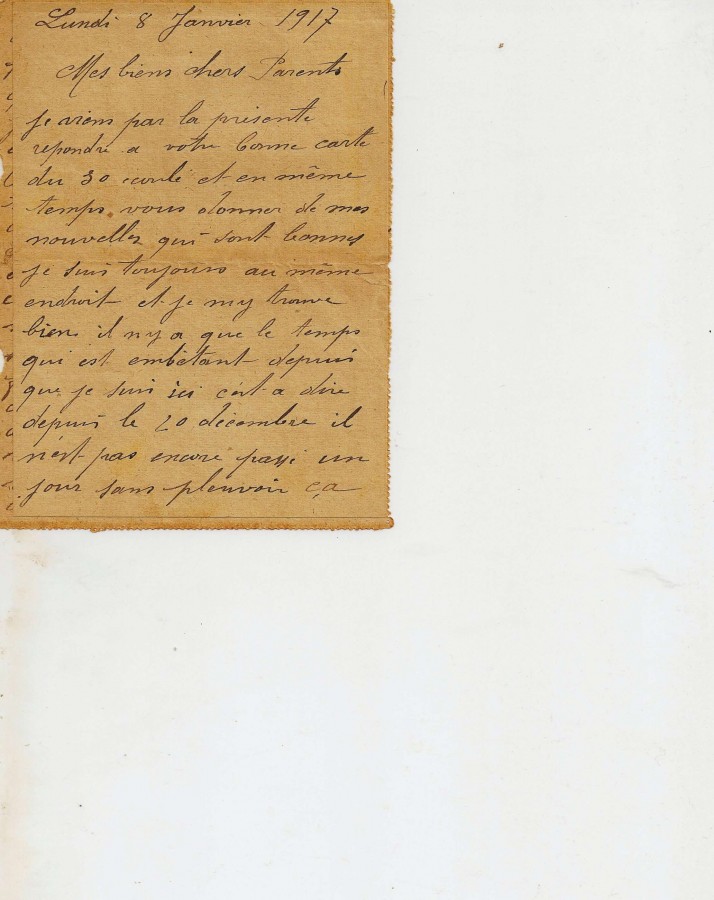 Lundi 8 Janvier 1917
Mes biens chers Parents
je viens par la présente
repondre a votre bonne carte
du 30 coulé et en même
temps vous donner de mes
nouvelles qui sont bonnes
je suis toujours au même
endroit et je my trouve
bien il ny a que le temps
qui est embêtant depuis
que je suis ici c'est a dire
depuis le 20 décembre il
n'est pas encore passé un
jour sans pleuvoir ça